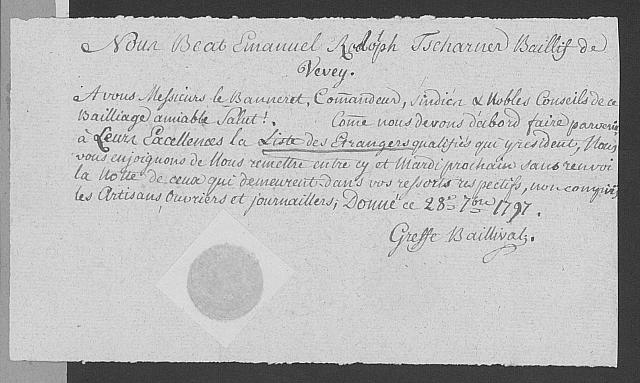 Nous Beat Emanuel Rodolph Tscharner Baillif de
Vevey.
A vous Messieurs le Banneret, Comandeur, Sindicn & Nobles Conseils de ce
Bailliage amiable Salut!. Come nous devons d'abord faire parvenir
à Leurs Excellences la Liste des Etrangers qualifiés qui y resident, Nous
vous enjoignons de Nous remettre entre cy et Mardi prochain sans renvoi
la Notte de ceux qui demeurent dans vos ressorts respectifs, non compris
les Artisans Ouvriers et journaillers; Donné ce 28e 7bre 1797.
Greffe Baillival.